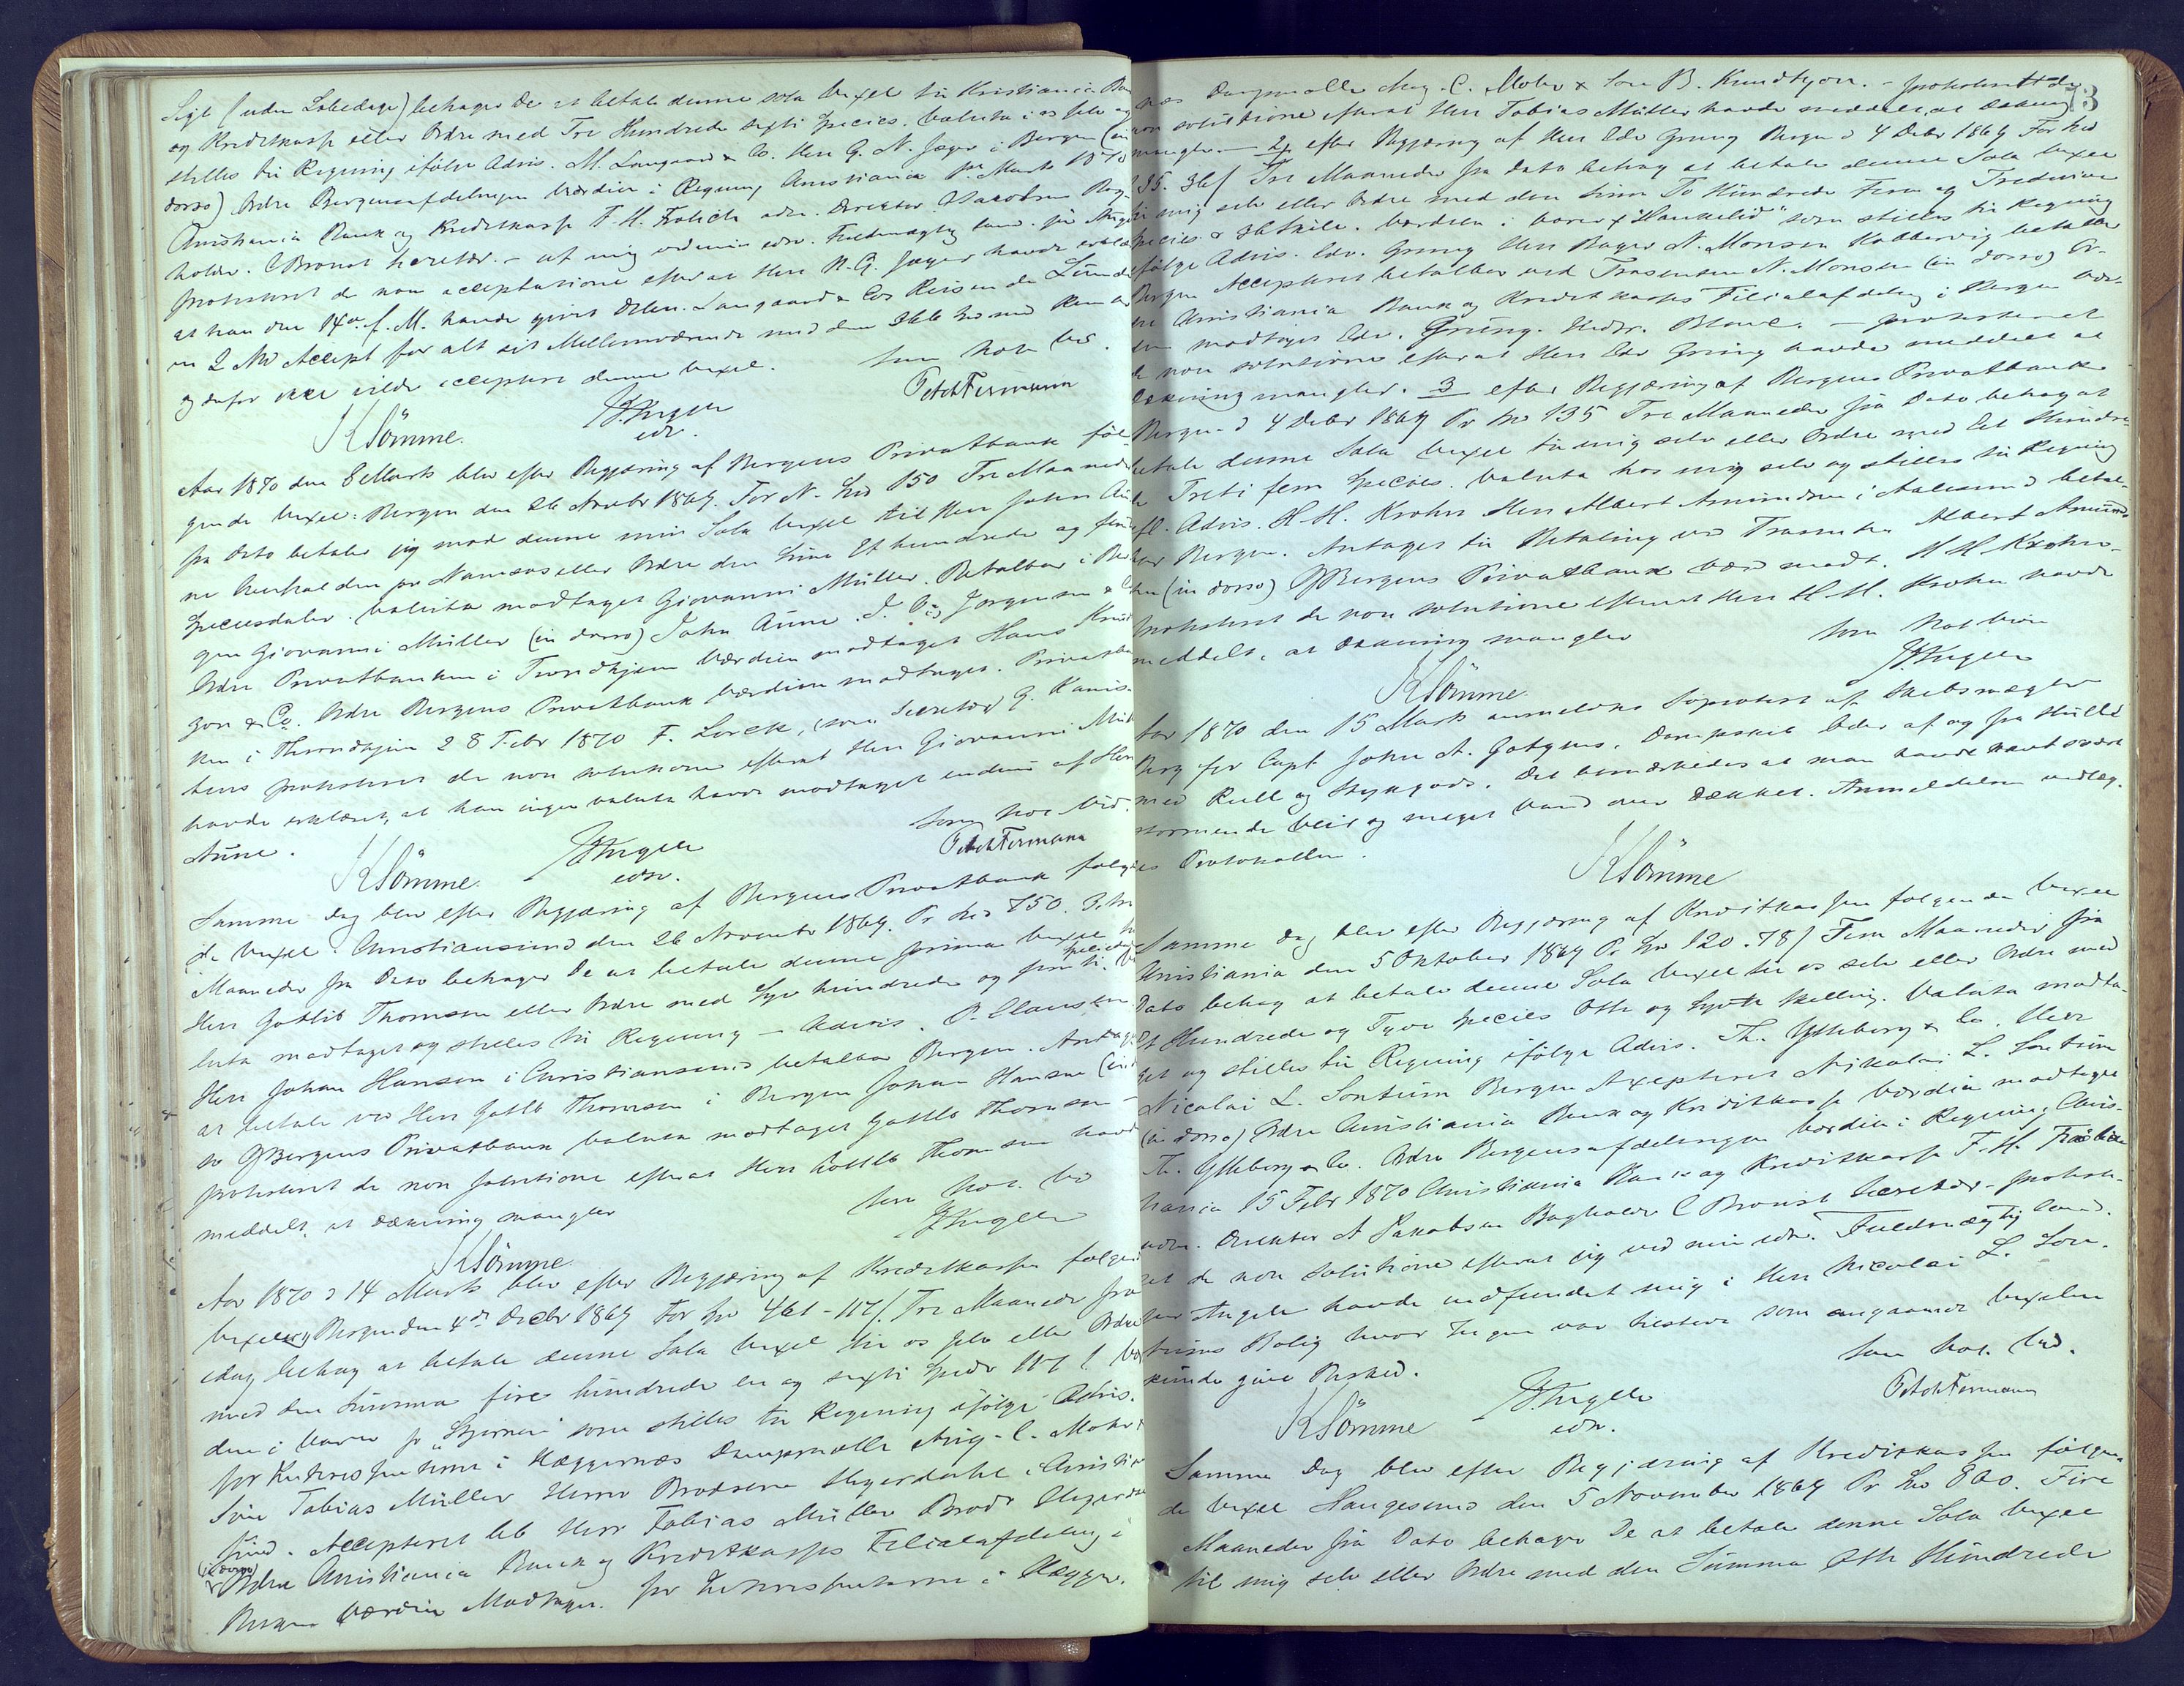 Sigt (uden Løbedage) behager De at betale denne sola Vexel til Kristiania Ban
og Kreditkasse eller Ordre med Tre Hundrede sexti Species. Valuta i os selv og
stilles til Regning ifølge Advis. M. Langaard & Co. Herr G. N. Jæger i Bergen (in
dorso) Ordre Bergensafdelingen Værdien i Regning Christiania 1ste Marts 1870
Christiania Bank og Kreditkasse F. H. Frølich adm. Direktør. Jacobsen Bog-
holder. C Bronst Secretær. - af mig ved min edsv. Fuldmægtig Cand. jur Angell
protesteret de non acceptatione efter at Herr N. G. Jæger havde erklæ
at han den 14de f. M. havde givet DHrr. Langaard & Cos Reisende Lund
en 2 Md Accept for alt sit Mellemværende med dem 366 Spd med Renter
og derfor ikke vilde acceptere denne Vexel.
som Not. Vid.
KSömme. JAngell Pet Ach Fermann
edsv.
Aar 1870 den 8 Marts blev efter Begjæring af Bergens Privatbank føl
gende Vexel: Bergen den 26 Novbr 1869. For N. Spd 150 Tre Maaneder
fra Dato betaler jeg mod denne min Sola Vexel til Herr John Au
ne Overhalden pr Namsos eller Ordre den Sum Et hundrede og femti
Speciesdaler. Valuta modtaget Giovanni Müller. Betalbar i Ber
gen Giovanni Müller (in dorso) John Aune. J. C. Jørgensen & C
Ordre Privatbanken i Trondhjem Værdien modtaget Hans Knud
zon & Co. Ordre Bergens Privatbank Værdien modtaget. Privatba
ken i Throndhjem 28 Febr 1870 F. Lorck, (som Secretær) G. Kamis-
tens protesteret de non solutione efterat Herr Giovanni Mül
havde erklæret, at han ingen Valuta havde modtaget endnu af Herr
Aune. som Not. Vid.
KSömme. JAngell Pet Ach Fermann
edsv.
Samme Dag blev efter Begjæring af Bergens Privatbank følge
de Vexel. Christiansund den 26 November 1869. Pr Spd 750. 3 tre
Maaneder fra Dato behager De at betale denne prima Vexel til
Herr Gotlib Thomsen eller Ordre med Syv hundrede og femti Species. Va
luta modtaget og stilles til Regning - Advis. P. Clausen
Herr Johan Hansen i Christiansund betalbar Bergen. Antages
at betale ved Herr Gotlb Thomsen i Bergen Johan Hansen (in
so Bergens Privatbank Valuta modtaget Gottlb Thomsen -
protesteret de non solutione efterat Herr Gottlb Thomsen havde
meddelt, at Dækning mangler som Not. Vid
KSömme. JAngell
Aar 1870 d 14 Marts blev efter Begjæring af Kreditkassen følgende
Vexel Bergen den 4de Decbr 1869 For Spd 461-117/. Tre Maaneder fra
idag behag at betale denne Sola Vexel til os selv eller Ordre
med den Summa fire hundrede en og sexti Spd 117 s. Vær
dien i Varer pr "Stjernen" som stilles til Regning ifølge Advis.
for Interessenterne i Vaggernæs Dampmølle Aug. C. Mohr &
Søn Tobias Müller Herrer Brødrene Hegerdahl i Christian
sund. Accepteret Ub Herr Tobias Müller Brødr Hegerdahl
(in dorso)
Ordre Christiania Bank og Kreditkasses Filialafdeling i
Bergen Værdien Modtagen. for Interessenterne i Vagger.
13
næs Dampmølle Aug. C. Mohr & Søn B. Kundtzon. - protesteret de
non solutione efterat Herr Tobias Müller havde meddelt at Dækning
mangler. - 2, efter Begjæring af Herr Edv Grieg Bergen d 4 Debr 1869 For Spd
235. 36/ Tre Maaneder fra Dato behag at betale denne Sola Vexel
til mig selv eller Ordre med den Sum To Hundrede Fem og Tredive
Species & 36 Skill. Værdien i Varer pr "Haukelid" som stilles til Regning
ifølge Advis. Edv. Grieg Herr Bager N. Monsen Kobbervig betalbar
Bergen Accepteret betalbar ved Trasenten N. Monsen (in dorso) Or-
dre Christiania Bank og Kreditkasses Filialafdeling i Bergen Vær-
dien modtaget Edv. Grieg. Hedv. Blome. - protesteret
de non solutione efterat Herr Edv Grieg havde meddelt at
Dækning mangler. 3 efter Begjæring af Bergens Privatbank
Bergen d 4 Debr 1869 Pr Spd 135 Tre Maaneder fra Dato behag at
betale denne Sola Vexel til mig selv eller Ordre med Et Hundre-
de Treti fem Species. Valuta hos mig selv og stilles til Regning
ifl. Advis. H. H. Krohn Herr Albert Amundsen i Aalesund betal-
bar Bergen. Antages til Betaling ved Trasenten Albert Amund-
sen (in dorso) Bergens Privatbank Vær modt. H H Krohn -
protesteret de non solutione efterat Herr H. H. Krohn havde
meddelt, at Dækning mangler som Not Vid
KSömme JAngell
Aar 1870 den 15 Marts anmeldtes Søprotest af Skibsmægler
Berg for Capt John A. Gotgens, Dampskib Oder af og fra Hull
med Kull og Stykgods. Det bemærkedes at man havde havt svært
stormende Veir og meget Vand over Dækket. Anmeldelsen vedlæg-
ges Protokollen.
KSömme
Samme Dag blev efter Begjæring af Kreditkassen følgende Vexel
Christiania den 5 Oktober 1869 Pr Spd 120.78/ Fem Maaneder fra
Dato behag at betale denne Sola Vexel til os selv eller Ordre med
Et Hundrede og Tyve Species Otte og Sytti Skilling. Valuta modta-
get og stilles til Regning ifølge Advis. Th. Ytteborg & Co. Herr
Nicolai L. Sontum Bergen Axepteret Nikolai L. Sontum
(in dorso) Ordre Christiania Bank og Kreditkasse Værdien modtaget
Th. Ytteborg & Co. Ordre Bergensafdelingen Værdien i Regning Chris-
tiania 15 Febr 1870 Christiania Bank og Kreditkasse F. H. Frølich
adm. Direktør A Jakobsen Bogholder C Bronst Secretær - protest-
eret de non solutione efterat jeg ved min edsv. Fuldmægtig Cand.
jur Angell havde indfundet mig i Herr Nicolai L. Son-
tums Bolig hvor Ingen var tilstede som angaaende Vexelen
kunde give Besked. som Not. Vid.
KSömme JAngell Pet Ach Fermann
edsv.
Samme Dag blev efter Begjæring af Kreditkassen følgen-
de Vexel Haugesund den 5 November 1869 Pr Spd 860. Fire
Maaneder fra Dato behager De at betale denne Sola Vexel
til mig selv eller Ordre med den Summa Otte Hundrede